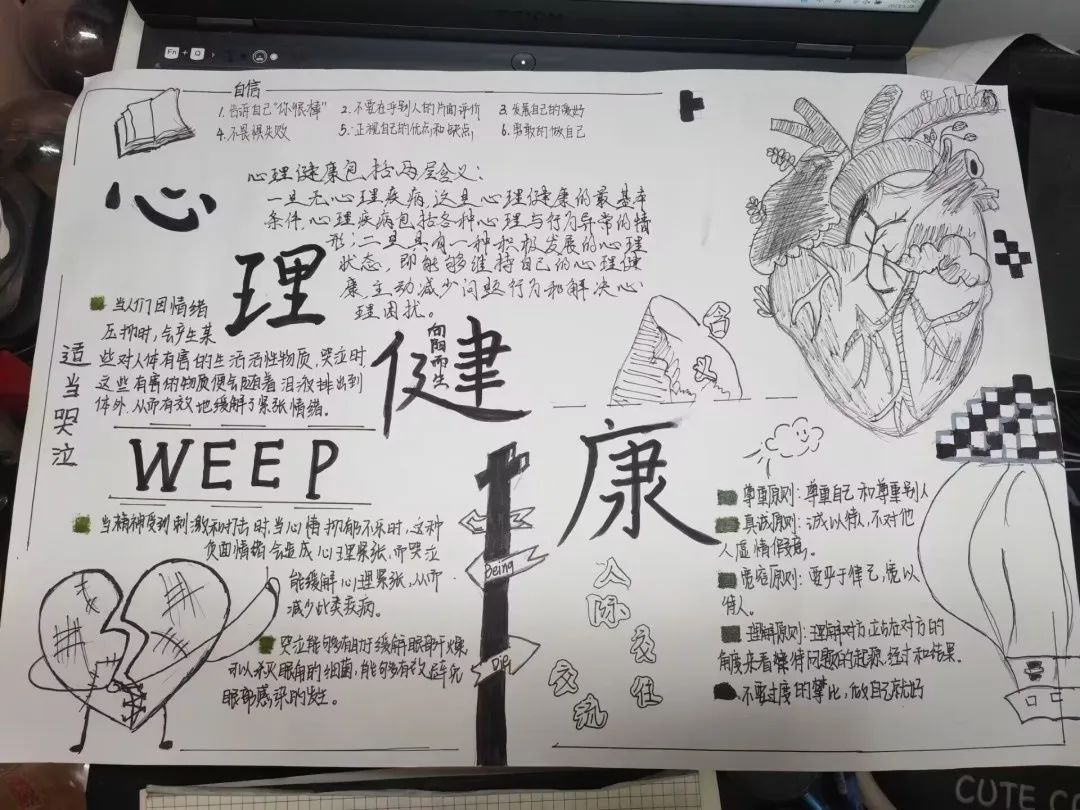 Fn + Q
自信
1. 告诉自己"你很棒" 2. 不要在乎别人的片面评价 3. 发展自己的爱好
4. 不畏惧失败 5. 正视自己的优点和缺点 6. 勇敢的做自己
心理健康包括两层含义：
一是无心理疾病，这是心理健康的最基本
条件，心理疾病包括各种心理与行为异常的情
形；二是具有一种积极发展的心理
状态，即能够维持自己的心理健
康，主动减少问题行为和解决心
理困扰。
心
理
健
康
向阳而生
含
义
适当哭泣
当人们因情绪
压抑时，会产生某
些对人体有害的生活活性物质，哭泣时，
这些有害的物质便会随着泪液排出到
体外，从而有效地缓解了紧张情绪。
WEEP
当精神受到刺激和打击时，当心情抑郁不乐时，这种
负面情绪会造成心理紧张，而哭泣
能缓解心理紧张，从而
减少此类疾病。
哭泣能够有助于缓解眼部干燥，
可以杀灭眼角的细菌，能够有效避免
眼部感染的发生。
Being
人
际
交
往
交
流
尊重原则：尊重自己和尊重别人
真诚原则：诚以待人，不对他
人虚情假意。
宽容原则：严于律己，宽以
待人。
理解原则：理解对方，立站在对方的
角度来看待问题的起源，经过和结果。
不要过度的攀比，做自己就好
CUTE